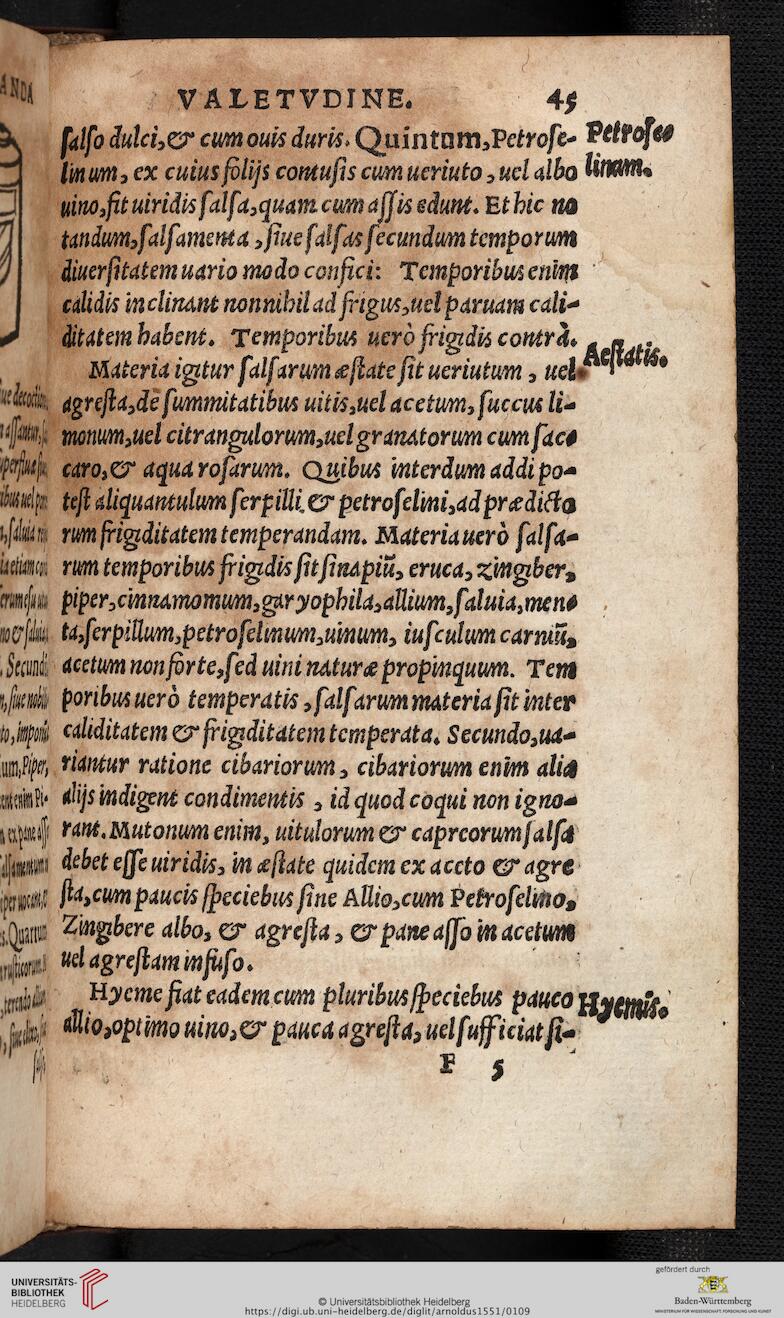 VALETVDINE. 45
ſalſo dulci,& cum ouis duris. Quintum,Petroſe-
linum, ex cuius folijs contuſis cum ueriuto, uel albo
uino,fit uiridis ſalſa,quam cum aſſis edunt. Et hic no
tandum,ſalſamenta, ſiue ſalſas ſecundum temporum
diuerſitatem uario modo confici: Temporibus enim
calidis inclinant nonnihil ad frigus,uel paruam cali-
ditatem habent. Temporibus uerò frigidis contrà.
Materia igitur ſalſarum æſtate ſit ueriutum, uel
agreſta,de ſummitatibus uitis,uel acetum, ſuccus li-
monum,uel citrangulorum,uel granatorum cum ſac-
caro,& aqua roſarum. Quibus interdum addi po-
teſt aliquantulum ſerpilli, & petroſelini,ad prædicto
rum frigiditatem temperandam. Materia uerò ſalſa-
rum temporibus frigidis ſit ſinapiū, eruca, zingiber,
piper, cinnamomum,garyophila,allium, ſaluia,men-
ta,ſerpillum,petroſelinum,uinum, iuſculum carniū,
acetum non forte,ſed uini naturæ propinquum. Tem
poribus uerò temperatis, ſalſarum materia ſit inter
caliditatem & frigiditatem temperata. Secundo,ua-
riantur ratione cibariorum, cibariorum enim alia
alijs indigent condimentis, id quod coqui non igno-
rant. Mutonum enim, uitulorum & capreorum ſalſa
debet eſſe uiridis, in æſtate quidem ex aceto & agre
ſta,cum paucis ſpeciebus ſine Allio,cum Petroſelino,
Zingibere albo, & agreſta, & pane aſſo in acetum
uel agreſtam infuſo.
Hyeme fiat eadem cum pluribus ſpeciebus pauco
allio,optimo uino,& pauca agreſta, uel ſufficiat ſi-
F 5
Petroſe-
linum.
Aeſtatis.
Hyemis.
UNIVERSITÄTS-
BIBLIOTHEK
HEIDELBERG
© Universitätsbibliothek Heidelberg
https://digi.ub.uni-heidelberg.de/diglit/arnoldus1551/0109
gefördert durch
Baden-Württemberg
MINISTERIUM FÜR WISSENSCHAFT, FORSCHUNG UND KUNST